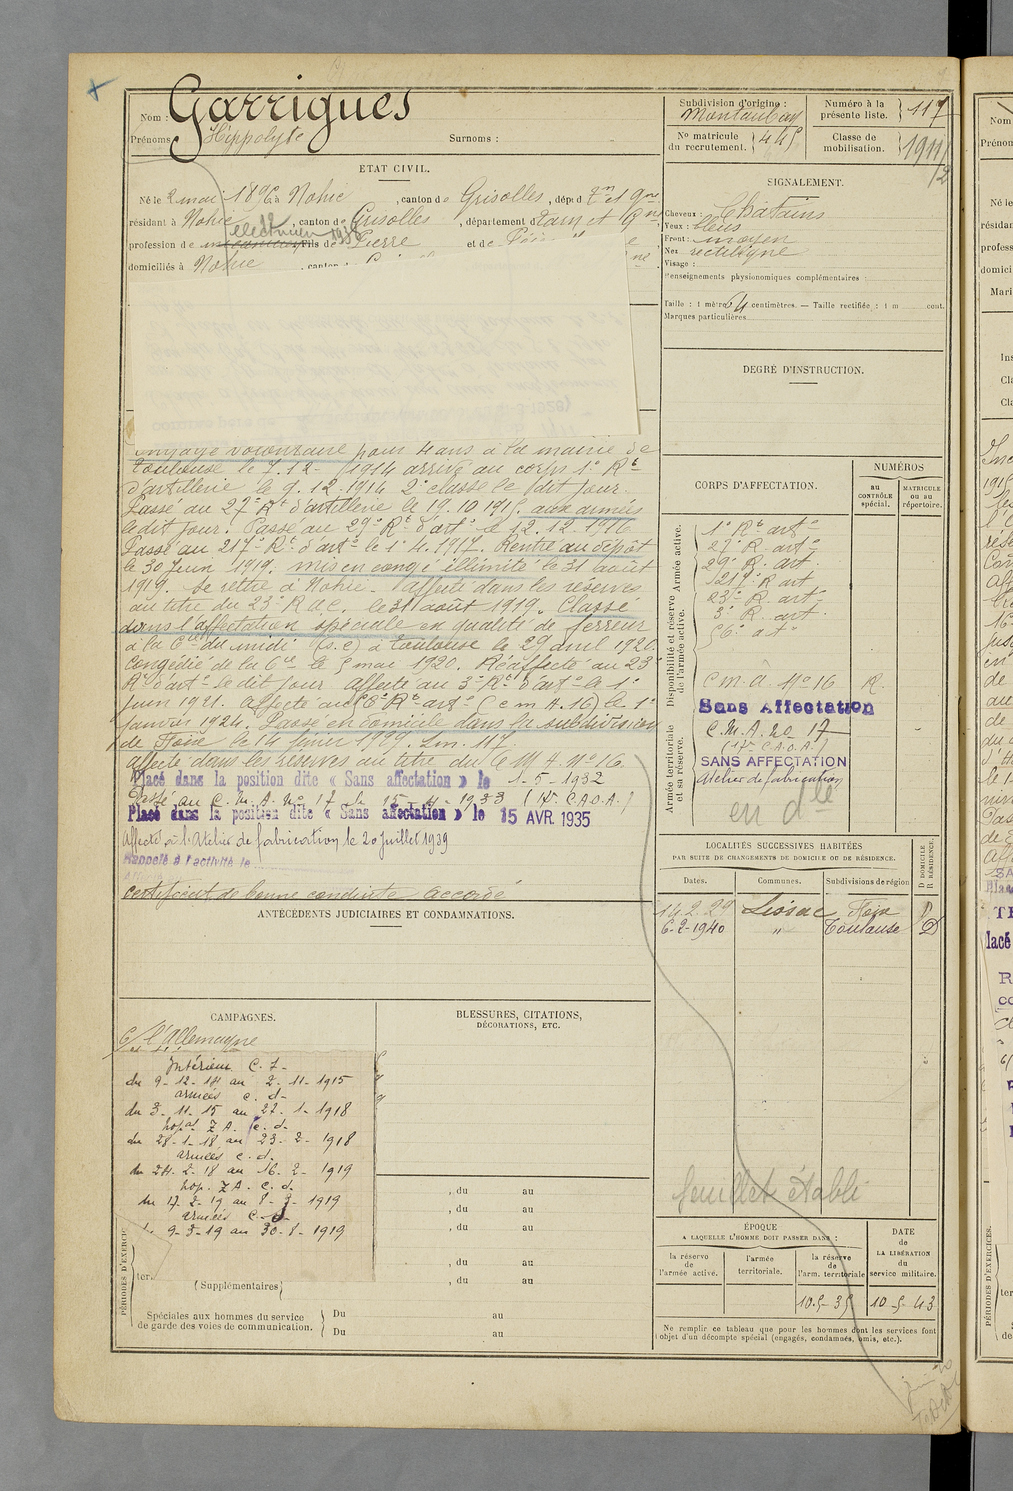 Nom : Garrigues
Prénoms Hippolyte
Surnoms :
Subdivision d'origine :
Montauban
Numéro à la
présente liste.
117
N° matricule
du recrutement.
445
Classe de
mobilisation.
1911/2
ETAT CIVIL.
Né le 2 mai 1896 à Nohic, canton de Grisolles, dépt d
résidant à Nohic, canton de Grisolles, département d Tarn et Gne
électricien 1938
profession de Fils de Pierre et de
domiciliés à Nohic, canton
SIGNALEMENT.
Cheveux : Châtains
Yeux : bleus
Front : moyen
Nez rectiligne
Visage :
Renseignements physionomiques complémentaires :
Taille : 1 mètre 64 centimètres. — Taille rectifiée : 1 m cent.
Marques particulières
DEGRÉ D'INSTRUCTION.
engagé volontaire pour 4 ans à la mairie de
Toulouse le 7.12- 1914 arrivé au corps 1° Rt
d'artillerie le 9.12-1914 2e classe le dit jour.
Passé au 27° Rt d'artillerie le 19.10 1915. aux armées
le dit jour. Passé au 29° Rt d'arte le 12.12.1916
Passé au 217° Rt d'arte le 1° 4.1917. Rentré au dépôt
le 30 Juin 1919. mis en congé illimité le 31 août
1919. Se retire à Nohic. Affecté dans les réserves
au titre du 23° R.a.c. le 31 août 1919. Classé
dans l'affectation spéciale en qualité de ferreur
à la Cie du midi (s.e) à Toulouse le 29 avril 1920.
Congédié de la Cie le 5 mai 1920. Réaffecté au 23°
Rt d'arte le dit jour Affecté au 3° Rt d'arte le 1°
Juin 1921. Affecté au 56° Rt arte (c m A. 16) le 1°
Janvier 1924. Passé en domicile dans la subdivision
de Foix le 14 février 1929. Lm. 117.
affecté dans les réserves au titre du C M A. N° 16.
Placé dans la position dite « Sans affectation » le 1-5-1932
Passé au C. M. A. N° 17 le 15-4-1933 (17e C.A.O.A.)
Placé dans la position dite « Sans affectation » le 15 AVR. 1935
Affecté à l'Atelier de fabrication le 20 juillet 1939
Rappelé à l'activité le
certificat de bonne conduite accordé
CORPS D'AFFECTATION.
NUMÉROS
au
CONTRÔLE
spécial.
MATRICULE
ou au
répertoire.
Armée active.
Disponibilité et réserve
de l'armée active.
Armée territoriale
et sa réserve.
1° Rt arte
27° R. arte
29° R. art.
217° R art
23° R. arte
3° R. arte
56° arte
C m. a. N° 16 R.
Sans Affectation
C. M. A. no 17
(17e C.A.O.A.)
SANS AFFECTATION
Atelier de fabrication
en dlé
LOCALITÉS SUCCESSIVES HABITÉES
PAR SUITE DE CHANGEMENTS DE DOMICILE OU DE RÉSIDENCE.
Dates.
Communes.
Subdivisions de région
D DOMICILE
R RÉSIDENCE.
14 2 29 Lissac Foix D
6-2-1940 " Toulouse D
ANTÉCÉDENTS JUDICIAIRES ET CONDAMNATIONS.
CAMPAGNES.
C/ l'Allemagne
Intérieur C. S-
du 9-12-14 au 2-11-1915
armées c. d-
du 3-11-15 au 27-1-1918
hopal Z A. C. d-
du 28-1-18 au 23-2-1918
armées c. d-
du 24-2-18 au 16-2-1919
hop. Z A- C. d.
du 17-2-19 au 8-3-1919
armées C. d-
9-3-19 au 30-8-1919
BLESSURES, CITATIONS,
DÉCORATIONS, ETC.
PÉRIODES D'EXERCICES.
, du au
, du au
, du au
, du au
(Supplémentaires) , du au
Spéciales aux hommes du service
de garde des voies de communication.
Du au
Du au
feuillet établi
ÉPOQUE
A LAQUELLE L'HOMME DOIT PASSER DANS :
la réserve
de
l'armée active.
l'armée
territoriale.
la réserve
de
l'arm. territoriale
DATE
de
LA LIBÉRATION
du
service militaire.
10-5-35
10-5-43
Ne remplir ce tableau que pour les hommes dont les services font
l'objet d'un décompte spécial (engagés, condamnés, omis, etc.).